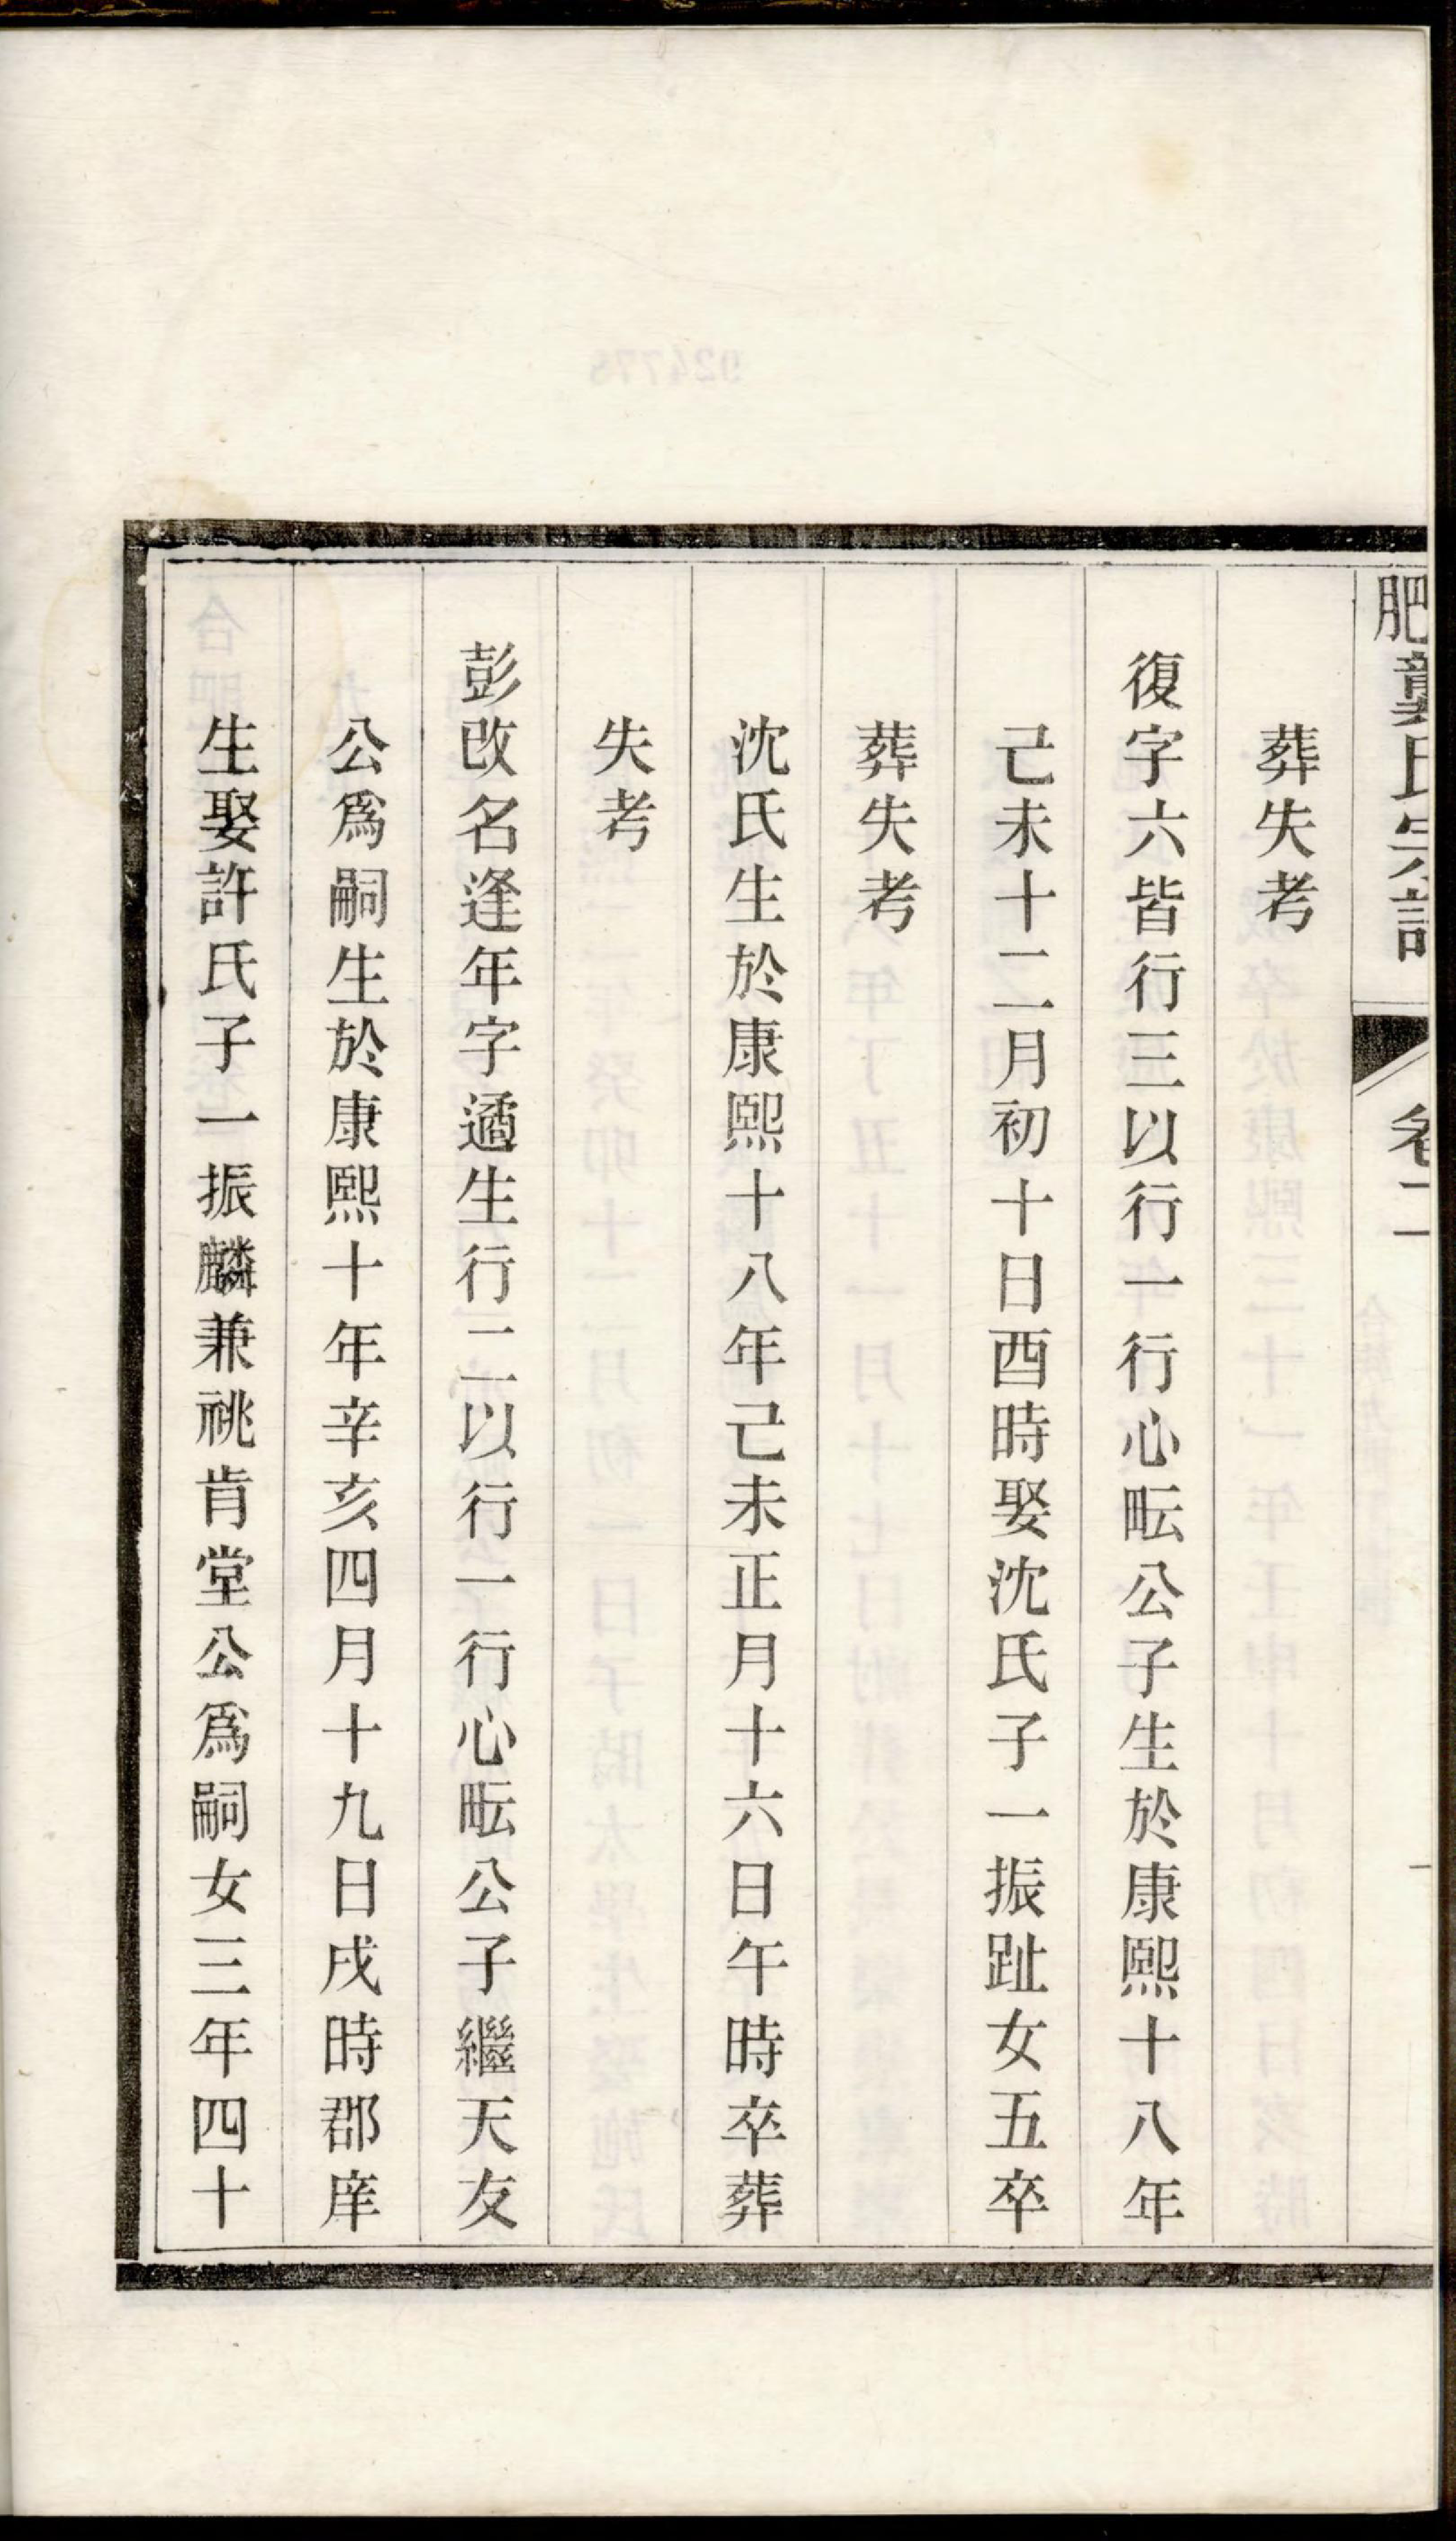 肥龔氏宗譜 卷二
葬失考
復字六皆行三以行一行心畇公子生於康熙十八年
己未十二月初十日酉時娶沈氏子一振趾女五卒
葬失考
沈氏生於康熙十八年己未正月十六日午時卒葬
失考
彭改名逢年字遹生行二以行一行心畇公子繼天友
公爲嗣生於康熙十年辛亥四月十九日戌時郡庠
生娶許氏子一振麟兼祧肯堂公爲嗣女三年四十